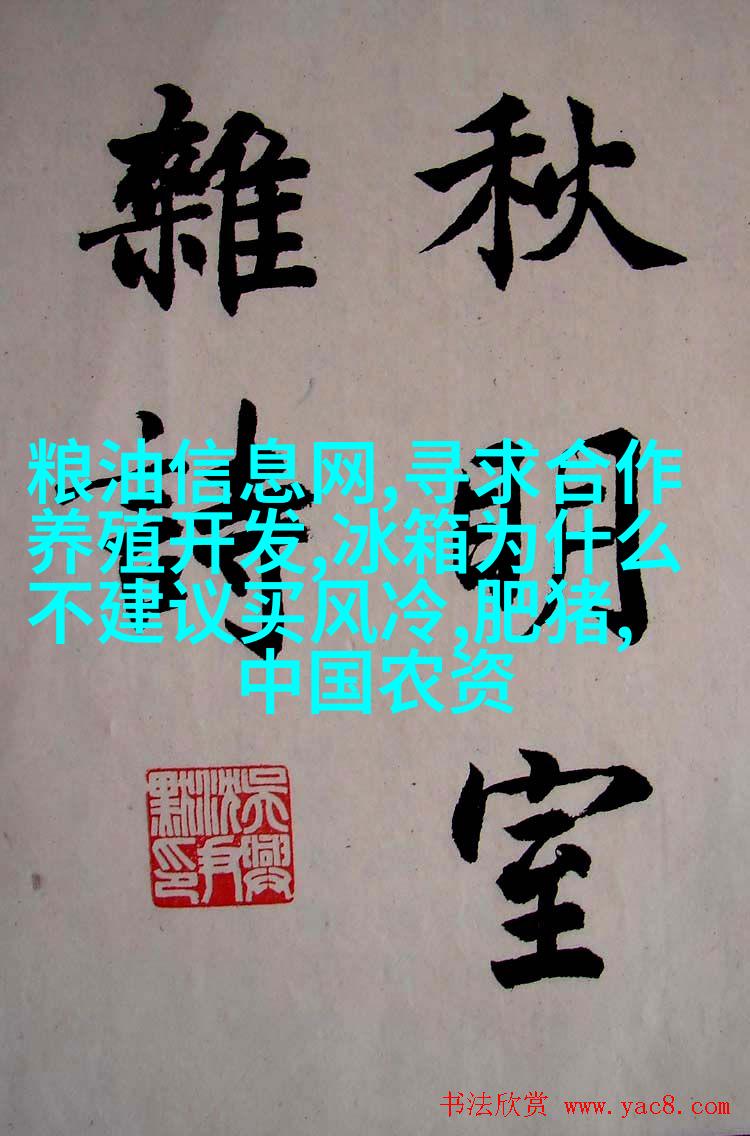 秋明室
雜詩
粮油信息网,寻求合作
养殖开发,冰箱为什么
不建议买风冷,肥猪,
中国农资
吳興
沈尹
默印
书法欣赏 www.yac8.com